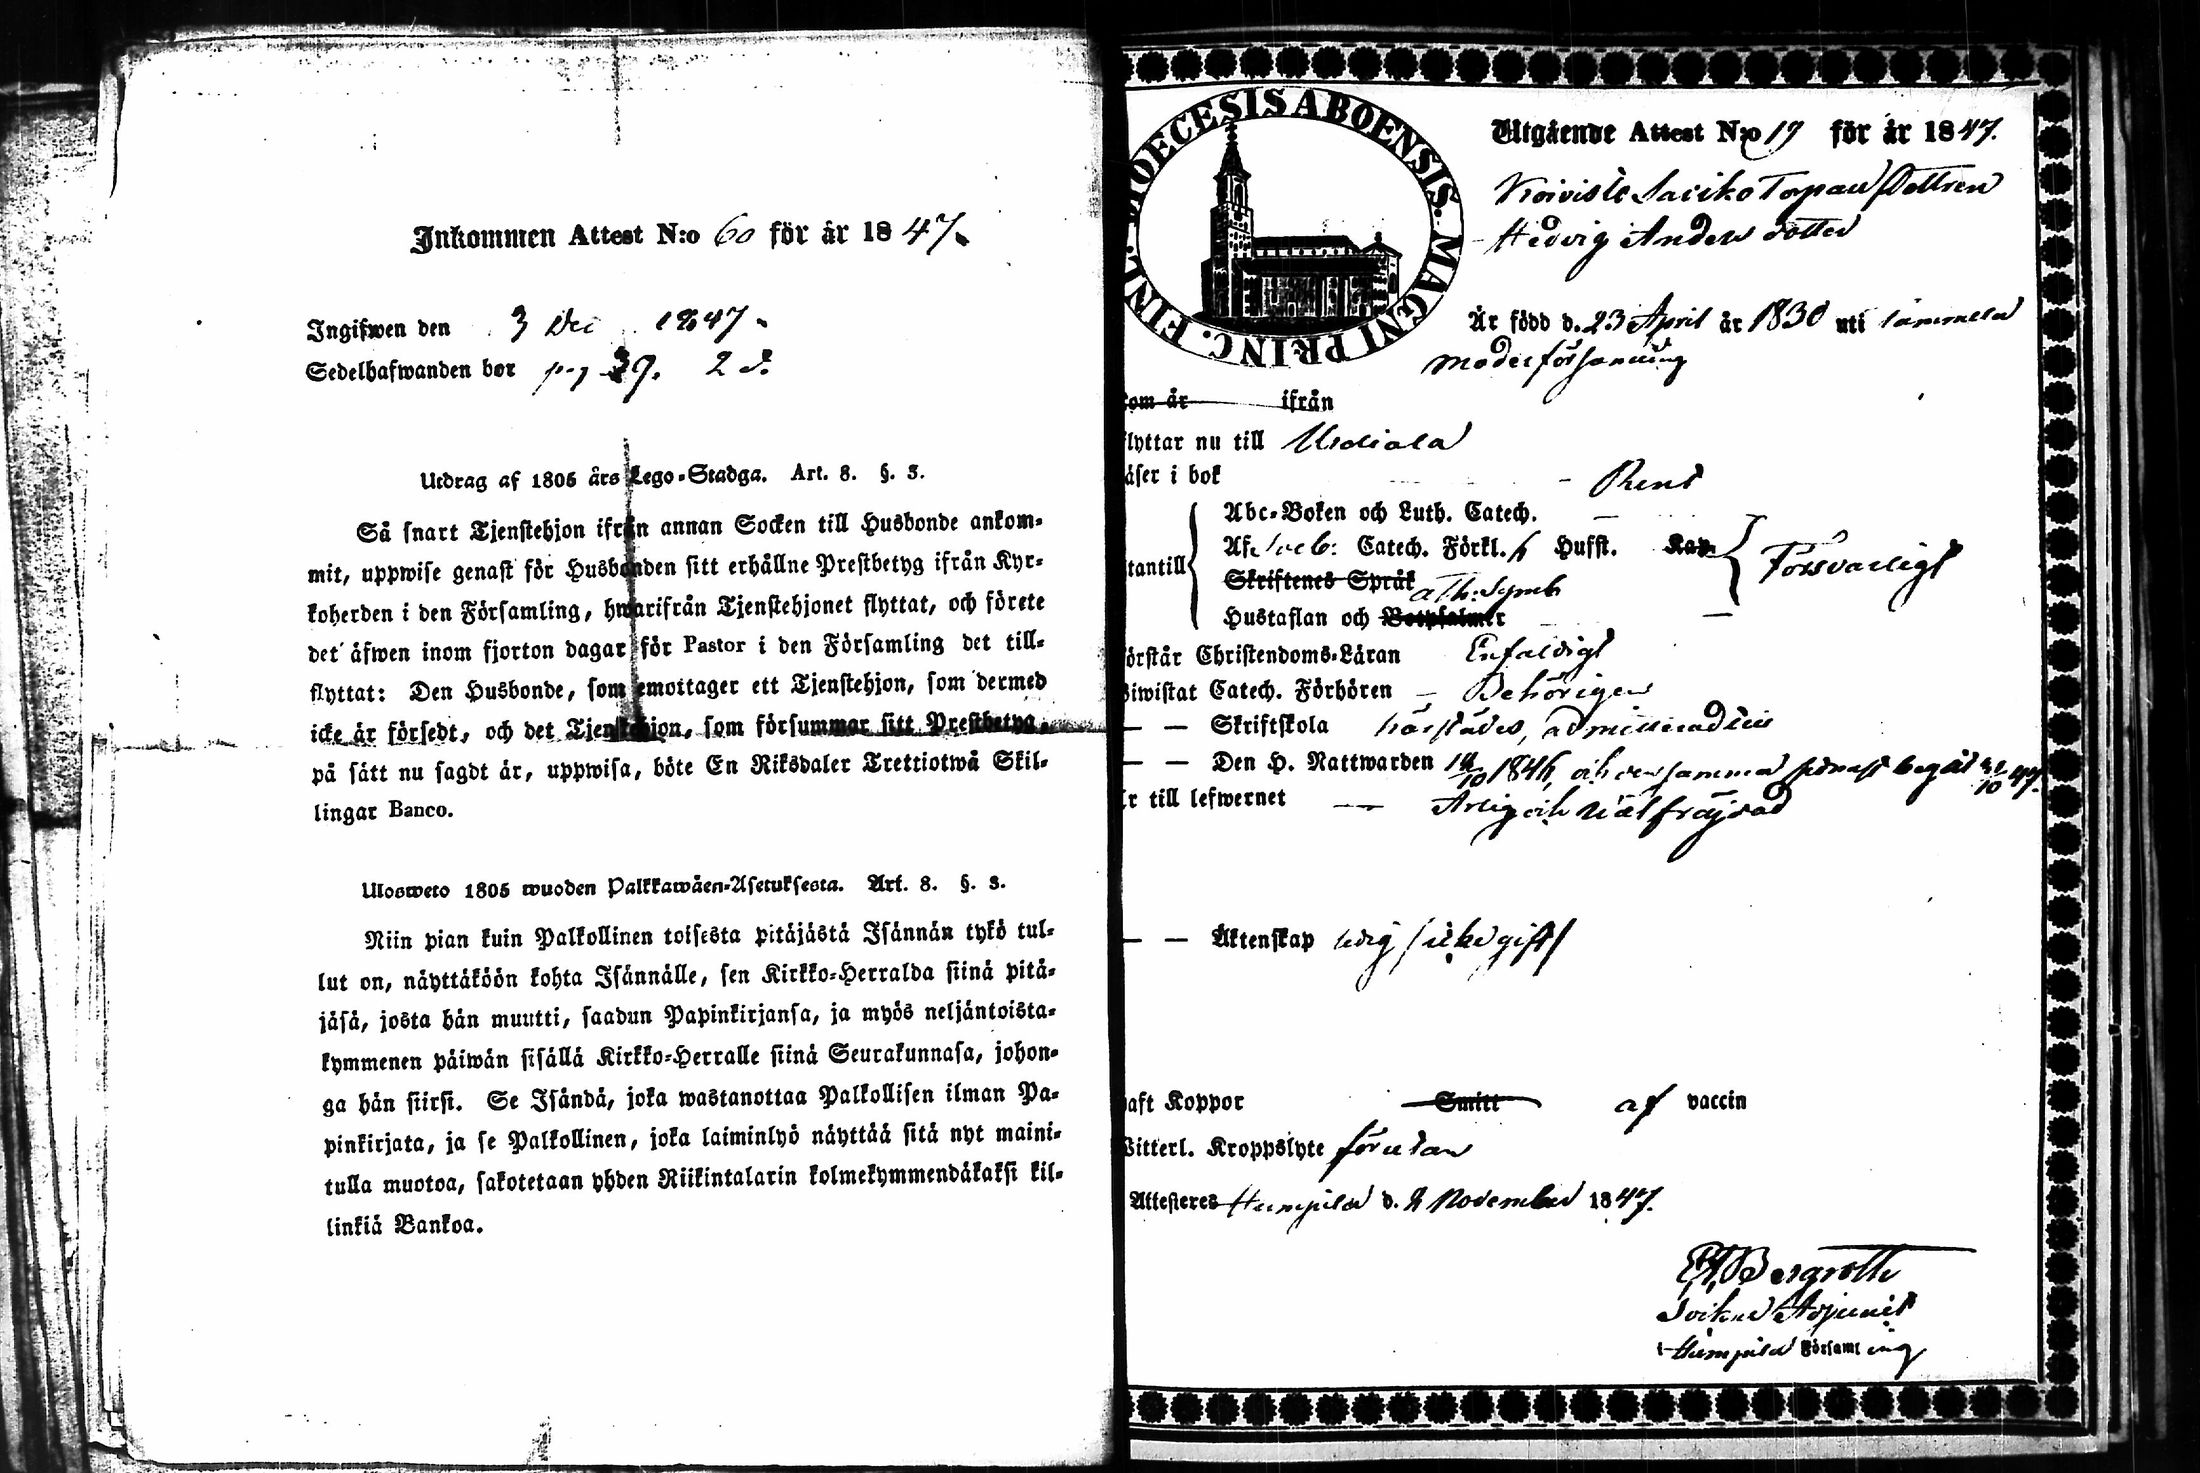 Inkommen Attest N:o 60 för år 1847.
Ingifwen den 3 Dec 1847.
Sedelhafwanden bor pag 39. 2 d.
Utdrag af 1805 års Lego-Stadga. Art. 8. §. 3.
Så snart Tjenstehjon ifrån annan Socken till Husbonde ankom-
mit, uppwise genast för Husbonden sitt erhållne Prestbetyg ifrån Kyr-
koherden i den Församling, hwarifrån Tjenstehjonet flyttat, och förete
det äfwen inom fjorton dagar för Pastor i den Församling det till-
flyttat: Den Husbonde, som emottager ett Tjenstehjon, som dermed
icke är försedt, och det Tjenstehjon, som försummar sitt Prestbetyg,
på sätt nu sagdt är, uppwisa, böte En Riksdaler Trettiotwå Skil-
lingar Banco.
Ulosweto 1805 wuoden Palkkawäen-Asetuksesta. Art. 8. §. 3.
Niin pian kuin Palkollinen toisesta pitäjästä Isännän tykö tul-
lut on, näyttäköön kohta Isännälle, sen Kirkko-Herralda siinä pitä-
jäsä, josta hän muutti, saadun Papinkirjansa, ja myös neljäntoista-
kymmenen päiwän sisällä Kirkko-Herralle siinä Seurakunnasa, johon-
ga hän siirsi. Se Isändä, joka wastanottaa Palkollisen ilman Pa-
pinkirjata, ja se Palkollinen, joka laiminlyö näyttää sitä nyt maini-
tulla muotoa, sakotetaan yhden Riikintalarin kolmekymmendäkaksi kil-
linkiä Bankoa.
DIOECESIS ABOENSIS. MAGNI PRINC. FINL.
Utgående Attest N:o 19 för år 1847.
Koivisto Torpare Dottren
Hedvig Anders dotter
Är född d. 23 April år 1830 uti Tammela
moderförsamling
kom år ifrån
flyttar nu till Urdiala
läser i bok Rent
Abc-Boken och Luth. Catech. —
Af Sveb: Catech. Förkl. Hufst. Kap.
utantill Försvarligt
Skriftenes Språk Ath: Symb
Hustaflan och Botpsalmer —
förstår Christendoms-Läran Enfaldigt
Biwistat Catech. Förhören — Behörigen
— — Skriftskola härstädes, admitterad till
— — Den H. Nattwarden 18/10 1846, och densamma sednast begått 31/10 47.
Är till lefwernet — Ärlig och väl fräjdad
— — Äktenskap ledig /icke gift/
haft Koppor Smitt af vaccin
Witterl. Kroppslyte förutan
Attesteras Humpila d. 2 November 1847.
Bergroth
Sockne Adjunct
i Humpila Församling